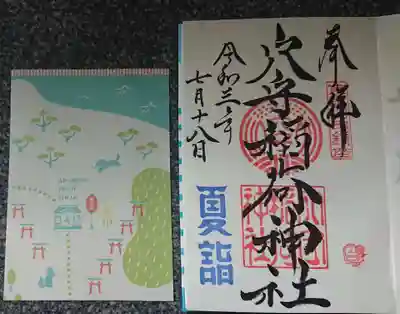 奉拝
穴守稲荷神社
令和三年
七月十八日
夏詣